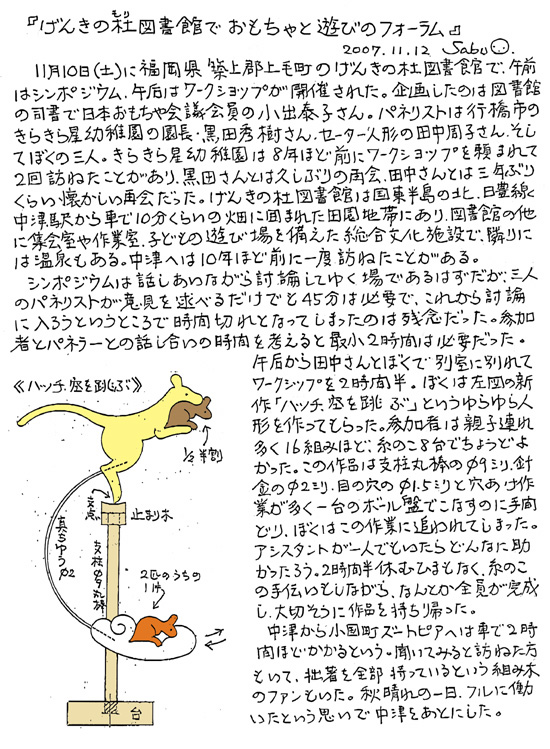 『げんきの杜図書館で おもちゃと遊びのフォーラム』
もり
2007.11.12 Sabu
11月10日(土)に福岡県 築上郡上毛町のげんきの杜図書館で、午前
はシンポジウム、午后はワークショップが開催された。企画したのは図書館
の司書で日本おもちゃ会議会員の小出泰子さん。パネリストは行橋市の
きらきら星幼稚園の園長・黒田秀樹さん、セーター人形の田中周子さん、そし
てぼくの三人。きらきら星幼稚園は8年ほど前にワークショップを頼まれて
2回訪ねたことがあり、黒田さんとは久しぶりの再会、田中さんとは三年ぶり
くらい懐かしい再会だった。げんきの杜図書館は国東半島の北、日豊線
中津駅から車で10分くらいの畑に囲まれた田園地帯にあり、図書館の他
に集会室や作業室、子どもの遊び場を備えた総合文化施設で、隣りに
は温泉もある。中津へは10年ほど前に一度訪ねたことがある。
シンポジウムは話しあいながら討論してゆく場であるはずだが、三人
のパネリストが意見を述べるだけでと45分は必要で、これから討論
に入ろうというところで時間切れとなってしまったのは残念だった。参加
者とパネラーとの話し合いの時間を考えると最小2時間は必要だった。
午后から田中さんとぼくで別室に別れて
ワークショップを2時間半。ぼくは左図の新
作「ハッチ、空を跳ぶ」というゆらゆら人
形を作ってもらった。参加者は親子連れ
多く16組みほど、糸のこ8台でちょうどよ
かった。この作品は支柱丸棒のφ9ミリ、針
金のφ2ミリ、目の穴のφ1.5ミリと穴あけ作
業が多く一台のボール盤でこなすのに手間
どり、ぼくはこの作業に追われてしまった。
アシスタントが一人でもいたらどんなに助
かったろう。2時間半休むひまもなく、糸のこ
の手伝いもしながら、なんとか全員が完成
し、大切そうに作品を持ち帰った。
中津から小国町ズートピアへは車で2時
間ほどかかるという。聞いてみると訪ねた方
もいて、拙著を全部持っているという組み木
のファンもいた。秋晴れの一日、フルに働
いたという思いで中津をあとにした。
《ハッチ、空を跳ぶ》
1/2半割
支点
止まり木
真ちゅうφ2
支柱φ9丸棒
2匹のうちの
1匹
台